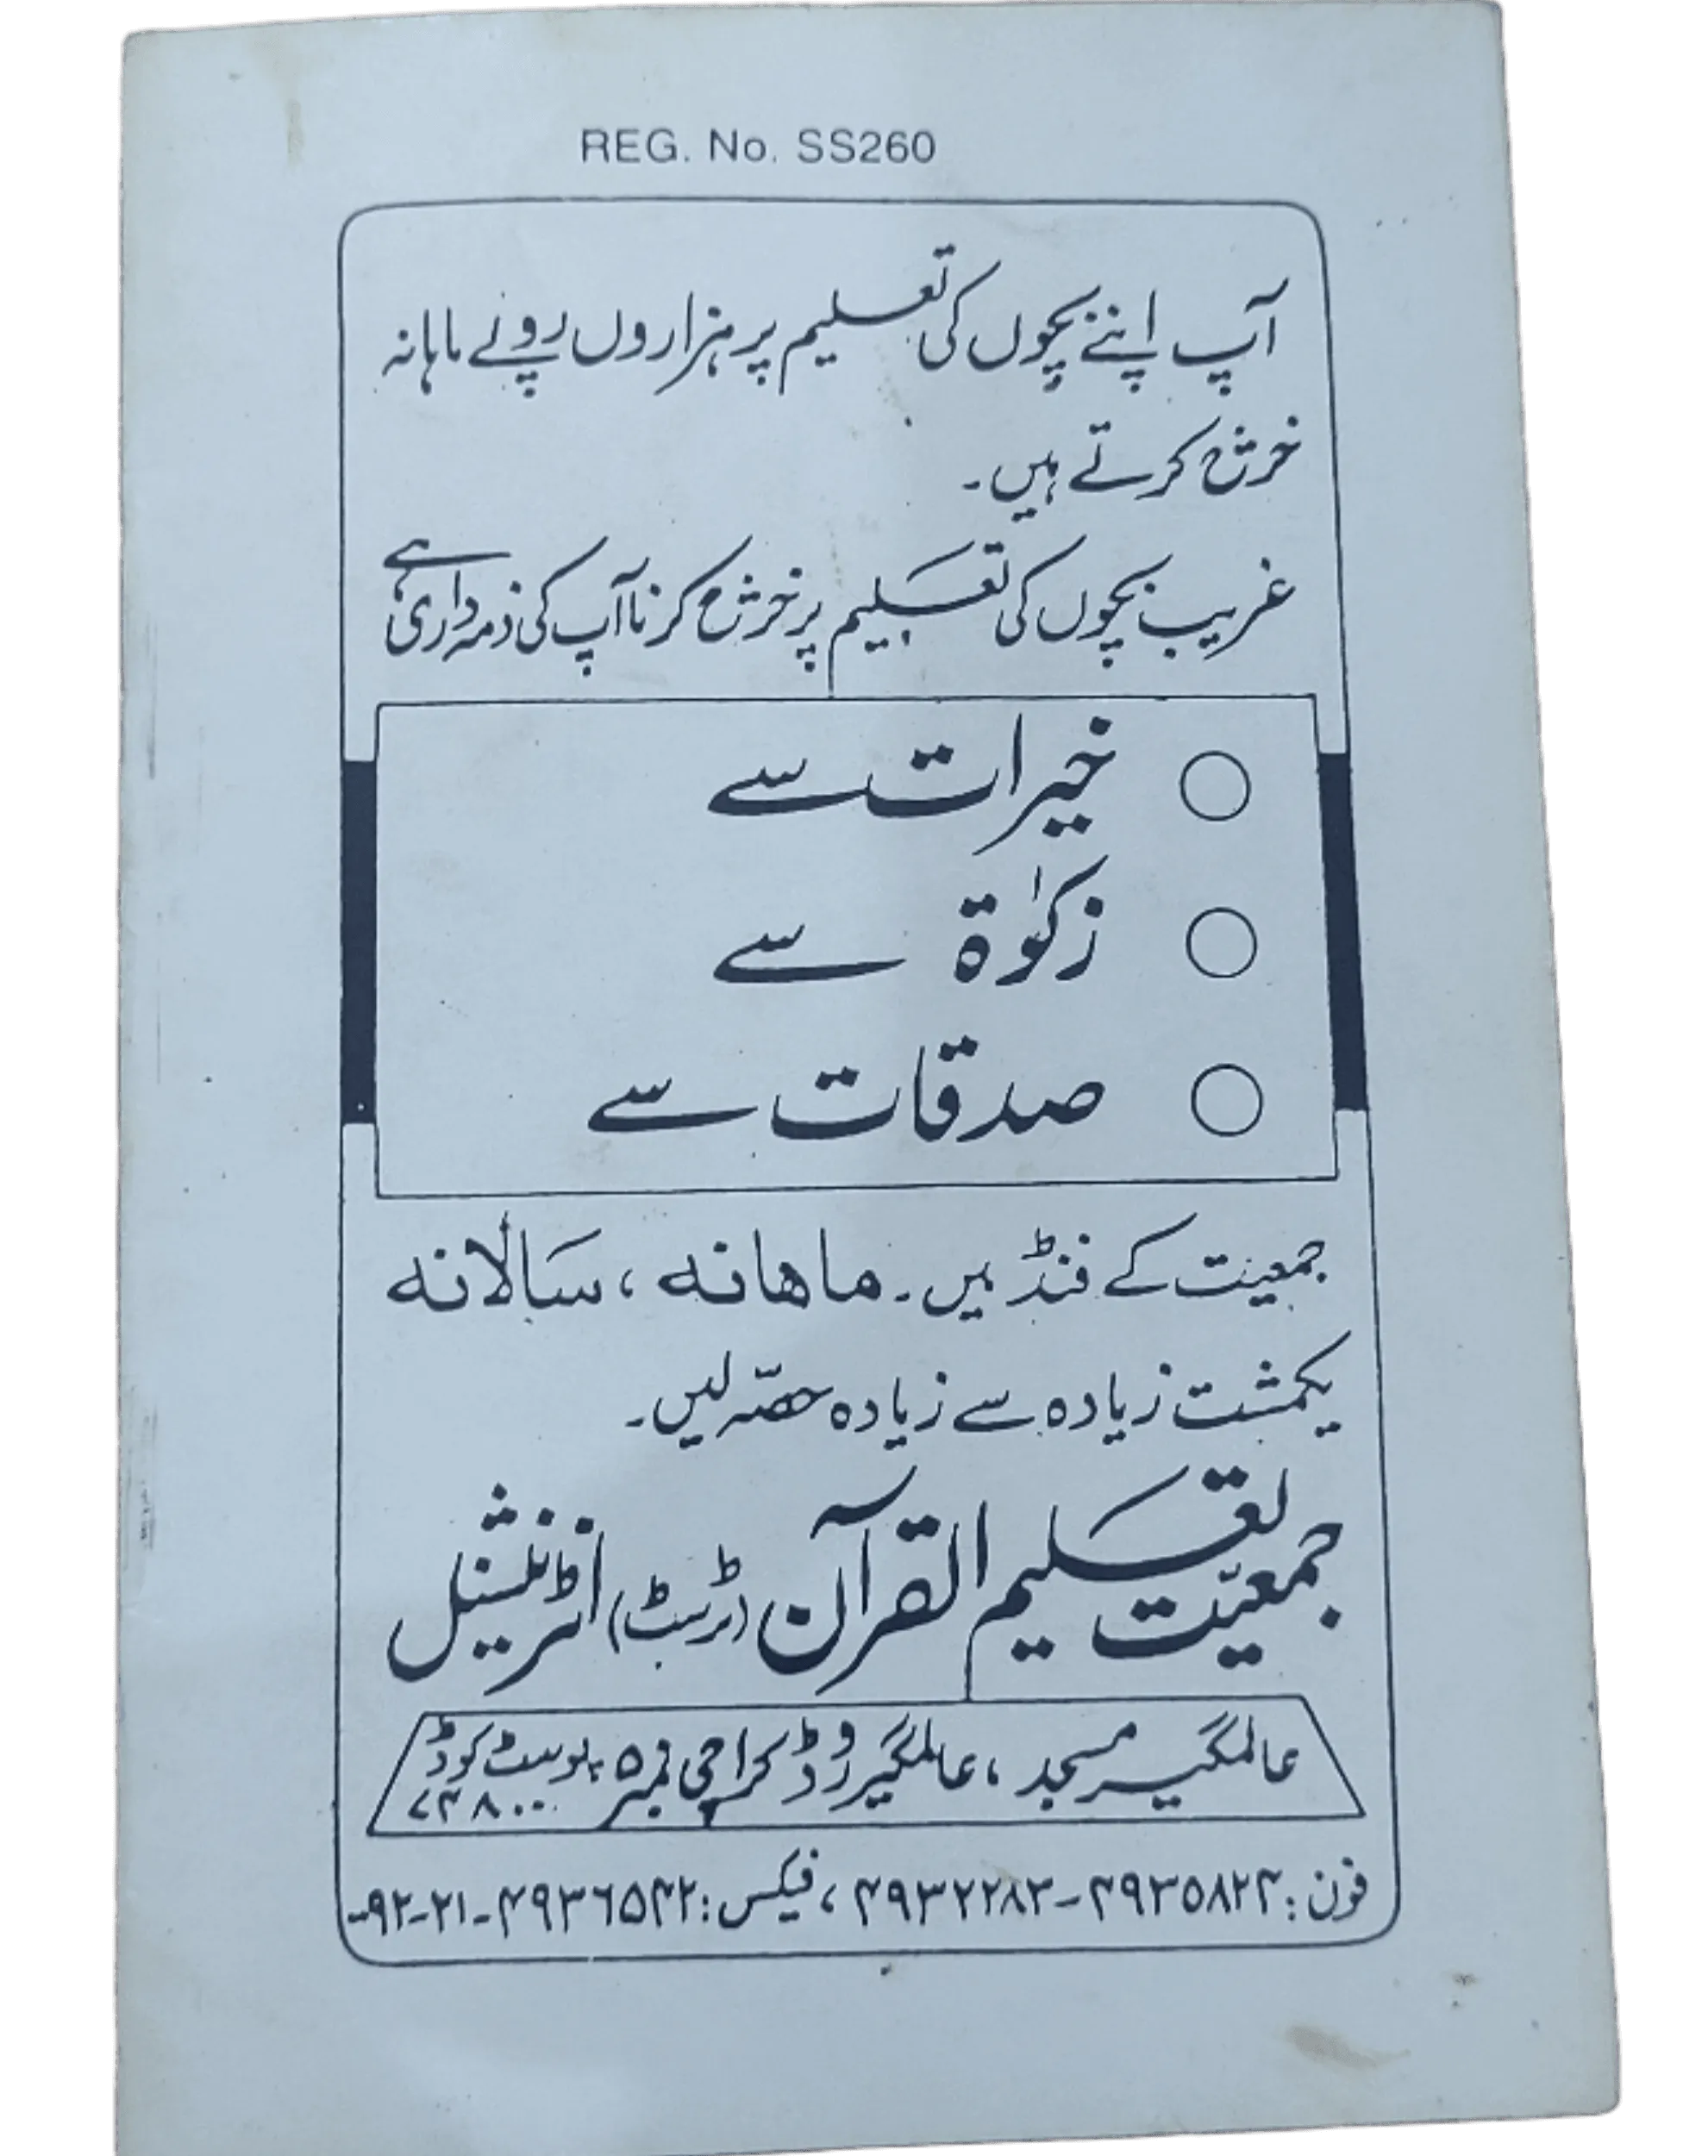 REG. No. SS260
آپ اپنے بچوں کی تعلیم پر ہزاروں روپے ماہانہ
خرچ کرتے ہیں۔
غریب بچوں کی تعلیم پر خرچ کرنا آپ کی ذمہ داری ہے
خیرات سے
زکوٰۃ سے
صدقات سے
جمعیت کے فنڈ میں۔ ماھانہ، سالانہ
یکمشت زیادہ سے زیادہ حصّہ لیں۔
جمعیّت تعلیم القرآن (ٹرسٹ) انٹرنیشنل
عالمگیر مسجد، عالمگیر روڈ کراچی نمبر ۵ پوسٹ کوڈ
۷۴۸۰۰
فون: ۴۹۳۵۸۲۴-۴۹۳۲۲۸۳، فیکس: ۴۹۳۶۵۴۲-۲۱-۹۲-